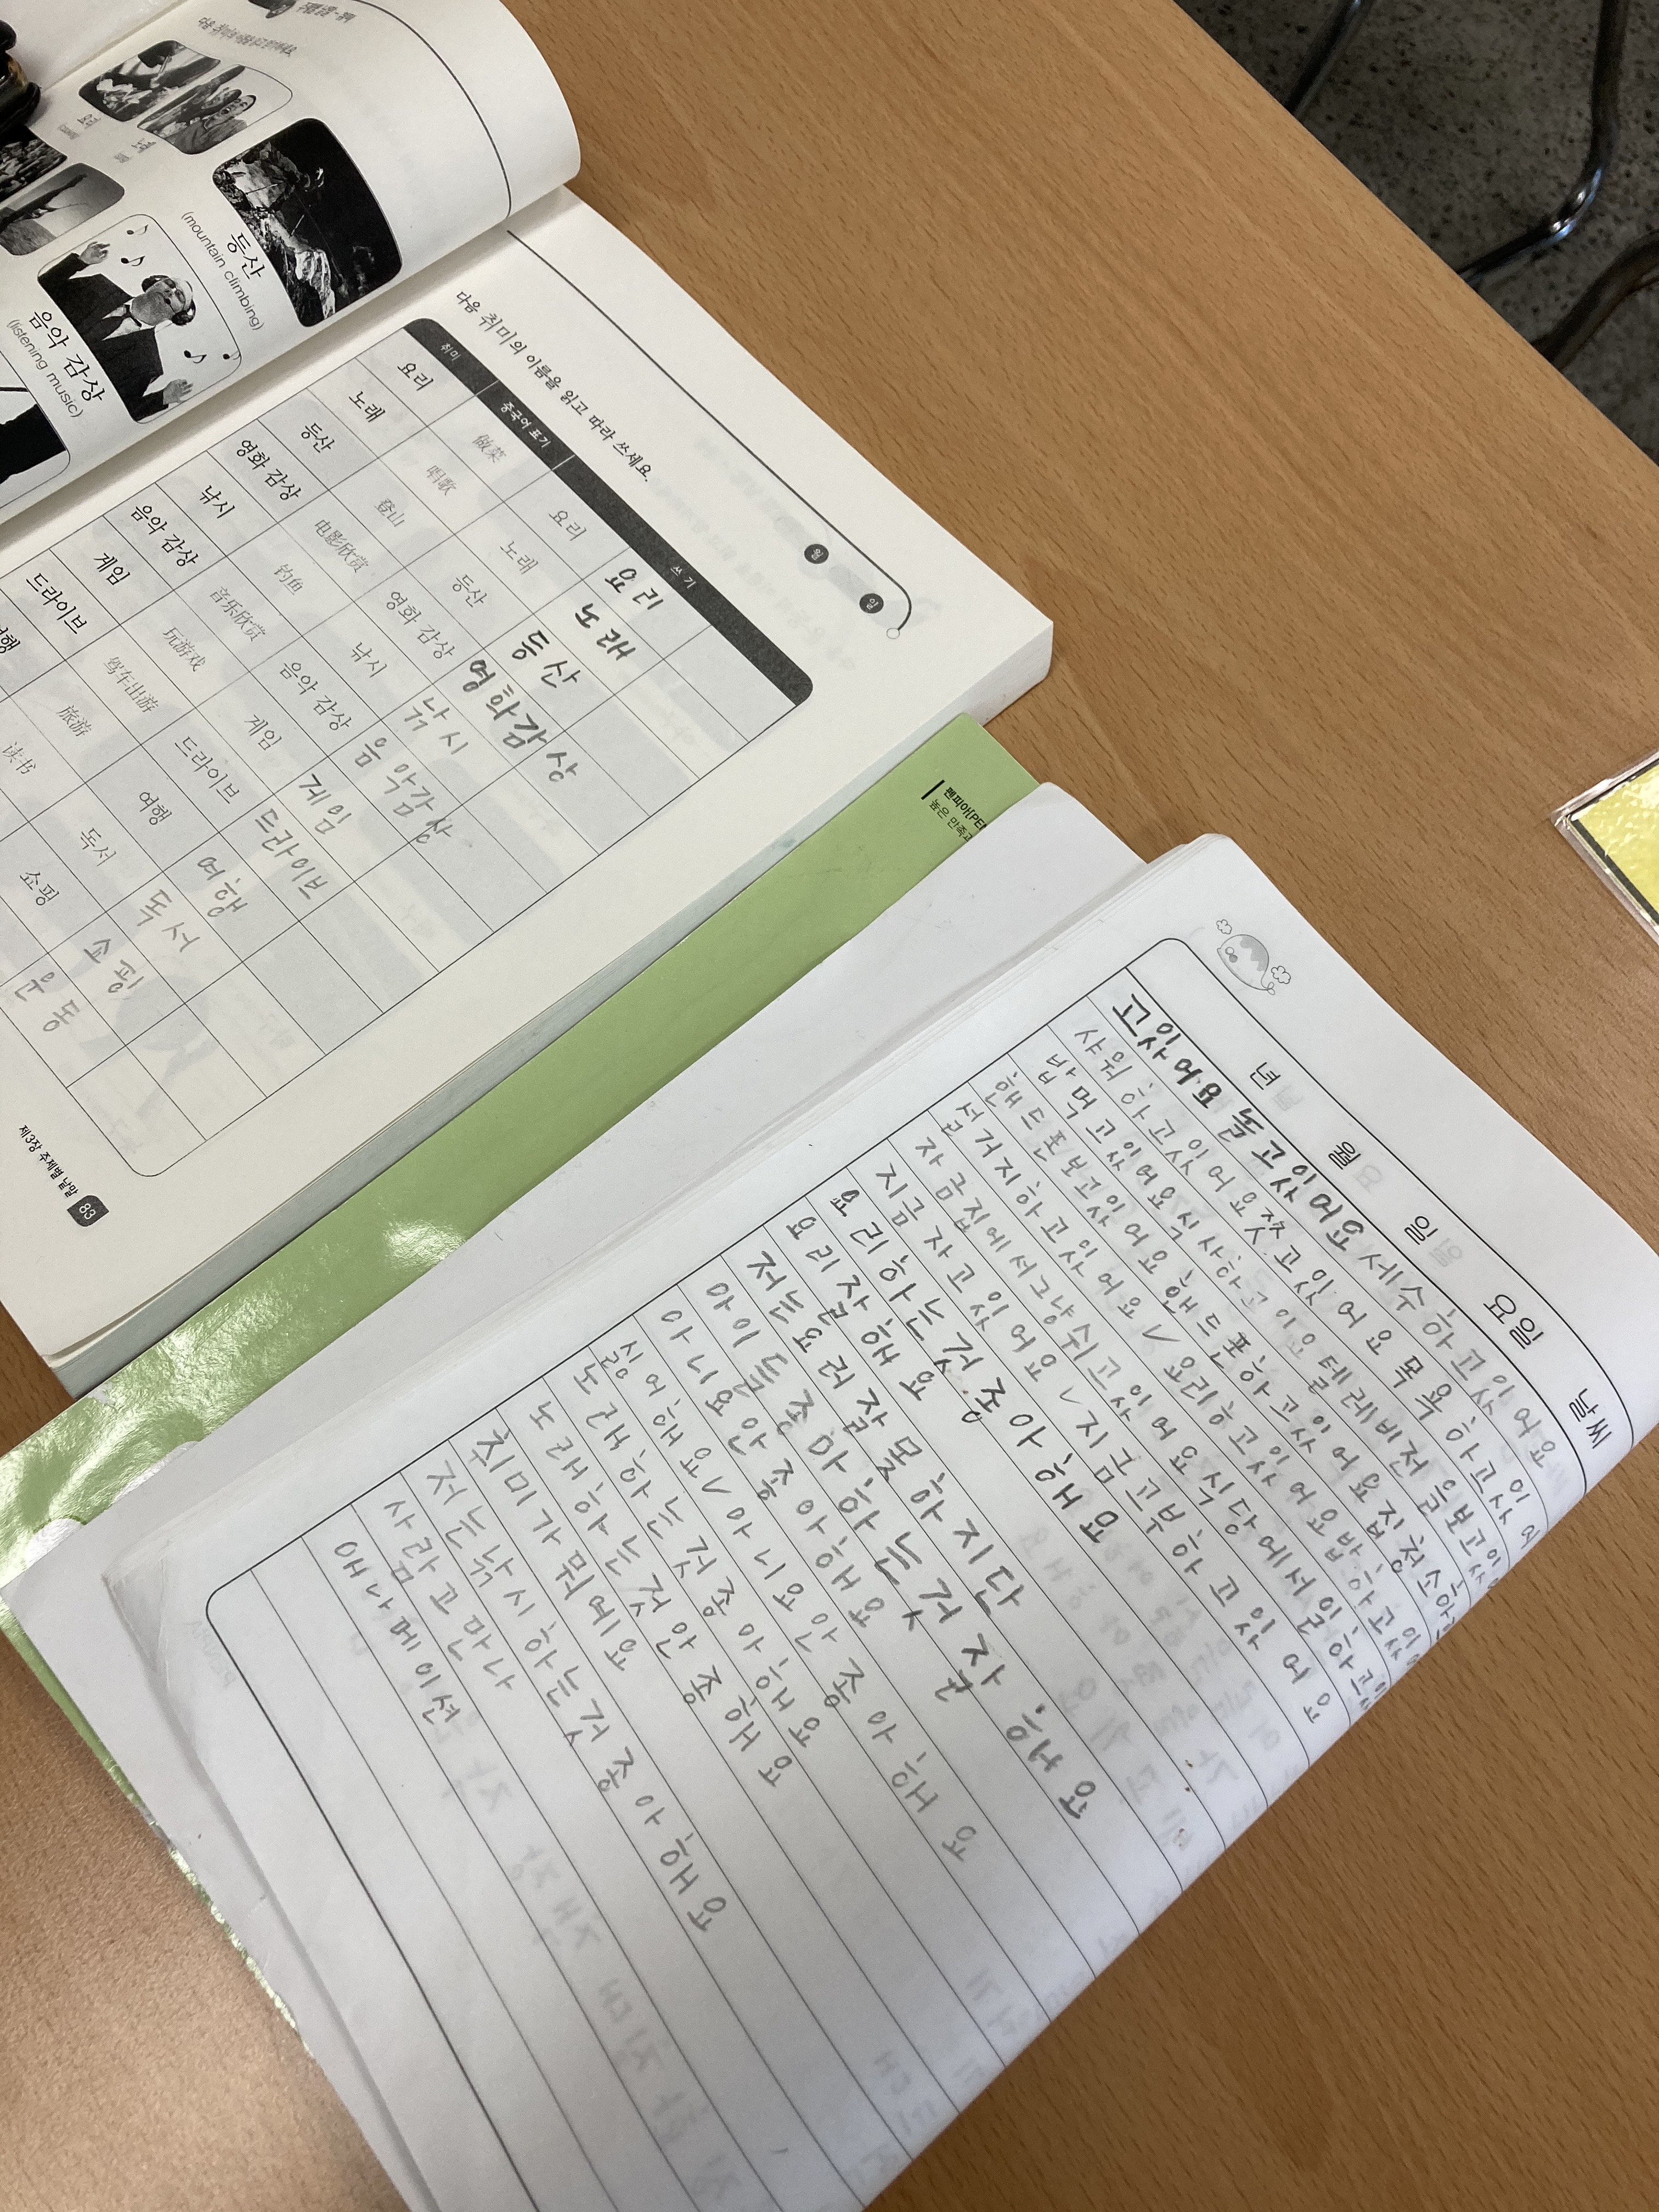 등산
(mountain climbing)
음악 감상
(listening music)
다음 취미의 이름을 읽고 따라 쓰세요.
월 일
취미 중국어 표기 쓰기
요리 做菜 요리 요리
노래 唱歌 노래 노래
등산 登山 등산 등산
영화 감상 电影欣赏 영화 감상 영화감상
낚시 钓鱼 낚시 낚시
음악 감상 音乐欣赏 음악 감상 음악감상
게임 玩游戏 게임 게임
드라이브 驾车出游 드라이브 드라이브
旅游 여행 여행
读书 독서 독서
쇼핑 쇼핑
운동
제3장 주제별 낱말 83
년 월 일 요일 날씨
고있어요 놀고있어요 세수하고있어요
샤워하고있어요 씻고있어요 목욕하고있어
밥먹고있어요 식사하고이요 텔레비전을보고있
핸드폰보고있어요 핸드폰하고있어요 집청소하
설거지하고있어요 ✓ 요리하고있어요 밥하고있
자금집에서그냥쉬고있어요 식당에서일하고
지금자고있어요 ✓ 지금고부하고있어요
요리하는것종아해요
요리잘해요
저는요러잘못하지단
아이들종아하는것자해요
아니요안종아해요
싫어해요 ✓ 아니요안종아해요
노래하는것종아해요
노래하는것안종해요
취미가뭐에요
저는낚시하는것종아해요
사람고만나
애나메이션